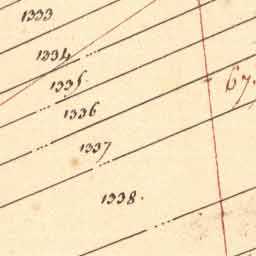 1333
1334
1335.
1336
67.
1337
1338.